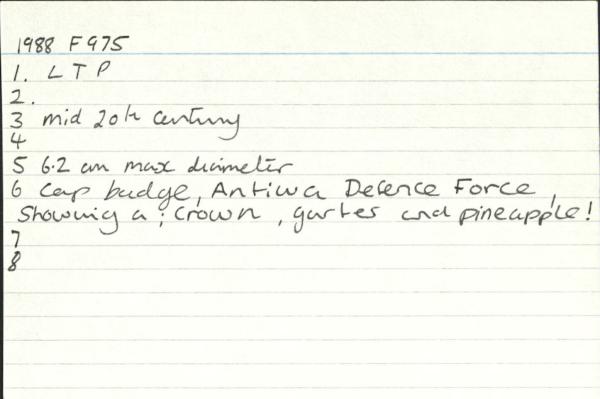 1988 F975
1. L T P
2.
3 mid 20th century
4
5 6.2 cm max diameter
6 Cap badge, Antiwa Defence Force,
Showing a; crown, garter and pineapple!
7
8